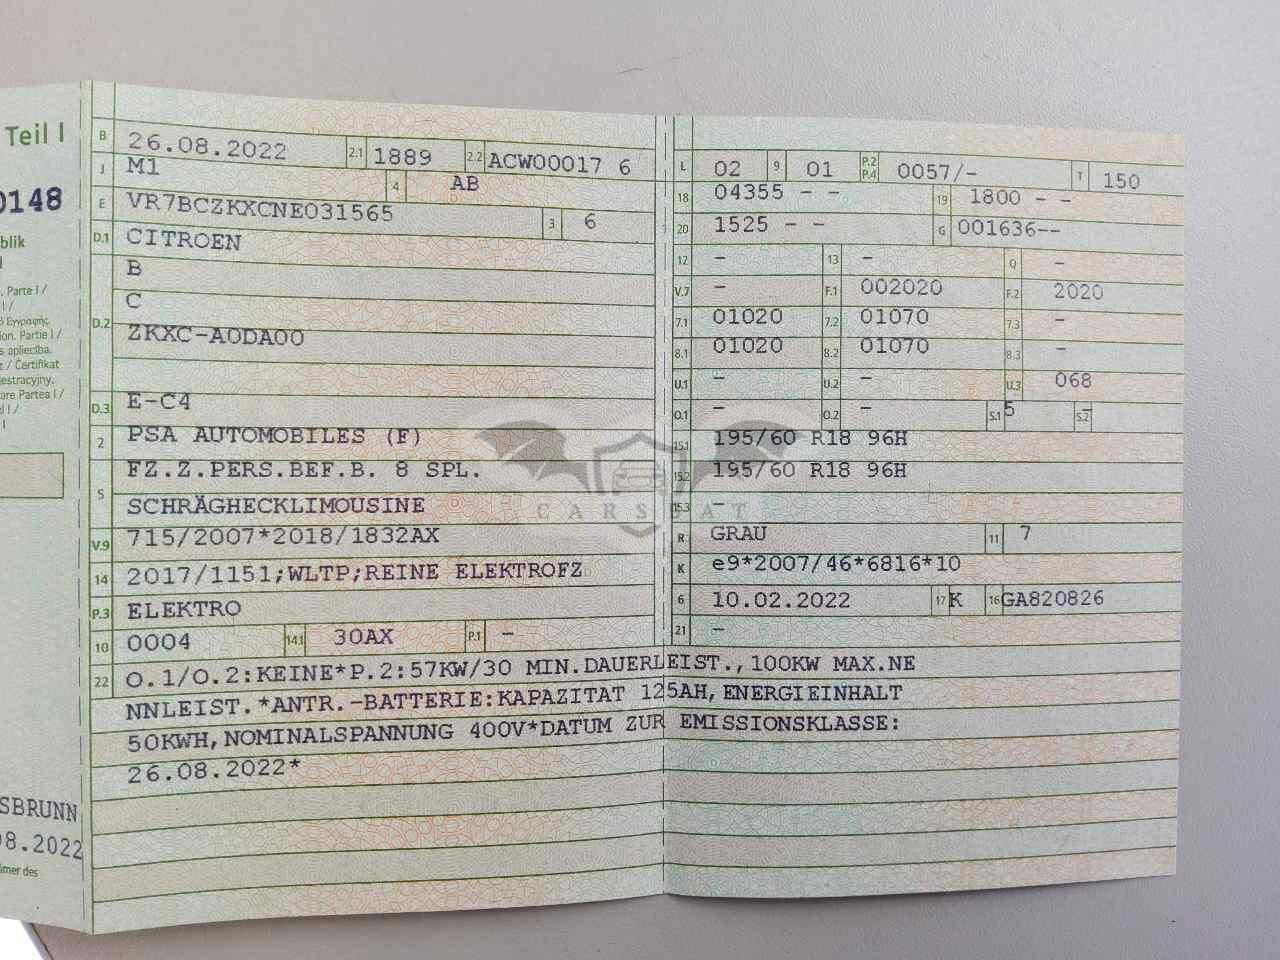 Teil I
0148
blik
. Parte I /
I /
ό Εγγραφής
ion. Partie I /
s apliecība.
t / Čertifikat
estracyjny.
are Partea I /
l I /
I
SBRUNN
08.2022
mer des
B 26.08.2022 2.1 1889 2.2 ACW00017 6
J M1 4 AB
E VR7BCZKXCNE031565 3 6
D.1 CITROEN
D.2 B
C
ZKXC-A0DA00
D.3 E-C4
2 PSA AUTOMOBILES (F)
5 FZ.Z.PERS.BEF.B. 8 SPL.
SCHRÄGHECKLIMOUSINE
V.9 715/2007*2018/1832AX
14 2017/1151;WLTP;REINE ELEKTROFZ
P.3 ELEKTRO
10 0004 14.1 30AX P.1 -
L 02 9 01 P.2 P.4 0057/- T 150
18 04355 - - 19 1800 - -
20 1525 - - G 001636--
12 - 13 - Q -
V.7 - F.1 002020 F.2 2020
7.1 01020 7.2 01070 7.3 -
8.1 01020 8.2 01070 8.3 -
U.1 - U.2 - U.3 068
O.1 - O.2 - S.1 5 S.2 -
15.1 195/60 R18 96H
15.2 195/60 R18 96H
15.3 -
R GRAU 11 7
K e9*2007/46*6816*10
6 10.02.2022 17 K 16 GA820826
21 -
22 O.1/O.2:KEINE*P.2:57KW/30 MIN.DAUERLEIST.,100KW MAX.NE
NNLEIST.*ANTR.-BATTERIE:KAPAZITAT 125AH,ENERGIEINHALT
50KWH,NOMINALSPANNUNG 400V*DATUM ZUR EMISSIONSKLASSE:
26.08.2022*
CARSBAT